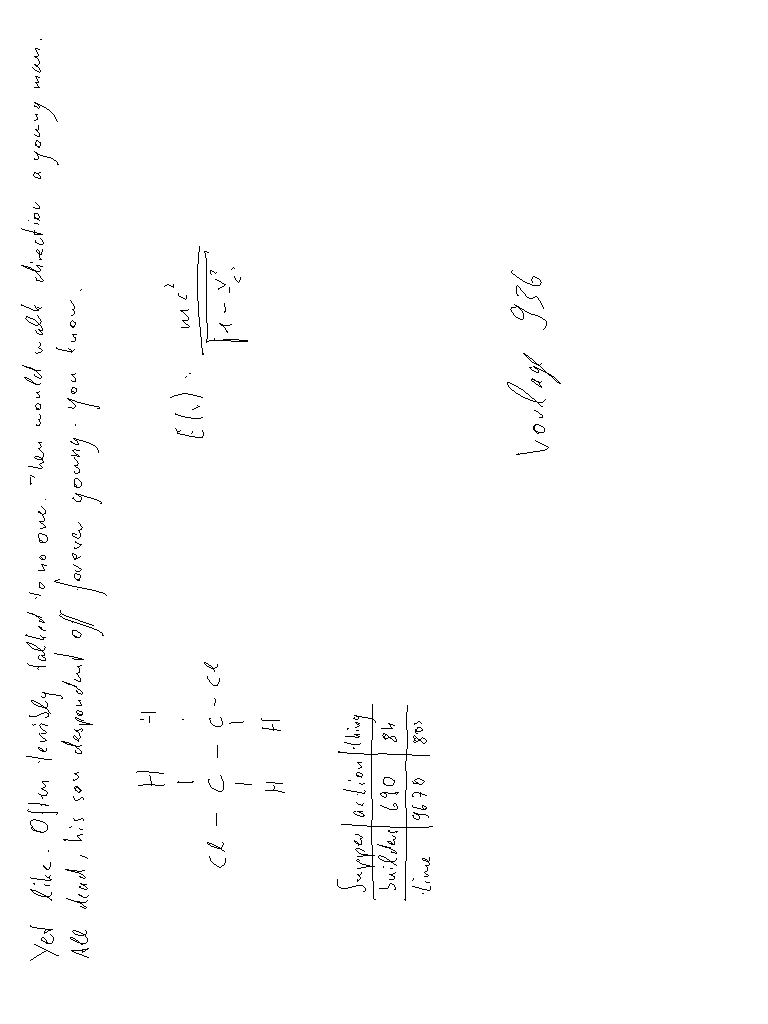 Yet like. Often terribly talked to no one. Then would walk direction a young man.
All dead, his son despondent off forever young. you know.
H H
Cl - C - C - Cl
H H
E(v) = mc² / √(1 - v²/c²)
Supper action thing
builders 690 84
time 9670 803
Vorlage 936